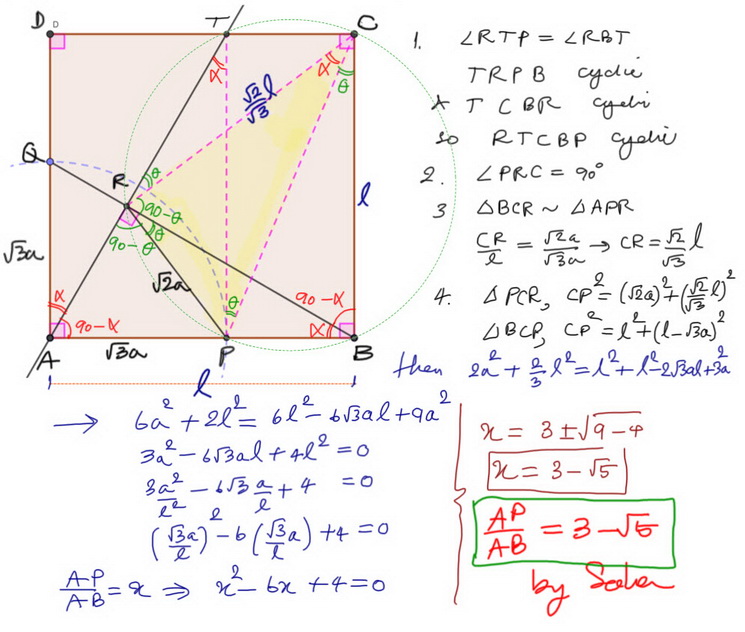 D D T C
α α θ
√2/√3 l
Q
R θ
90-θ
90-θ θ
l
√3a
√2a
α
90-α
θ
90-α
α
A √3a P B
l
1. ∠RTP = ∠RBT
TRPB cyclic
∧ TCBR cyclic
so RTCBP cyclic
2. ∠PRC = 90°
3 △BCR ~ △APR
CR/l = √2a/√3a → CR = √2/√3 l
4. △PCR, CP² = (√2a)² + (√2/√3 l)²
△BCP, CP² = l² + (l-√3a)²
then 2a² + 2/3 l² = l² + l² - 2√3al + 3a²
→ 6a² + 2l² = 6l² - 6√3al + 9a²
3a² - 6√3al + 4l² = 0
3a²/l² - 6√3 a/l + 4 = 0
(√3a/l)² - 6(√3a/l) + 4 = 0
AP/AB = x ⇒ x² - 6x + 4 = 0
x = 3 ± √9-4
x = 3 - √5
AP/AB = 3 - √5
by Saba